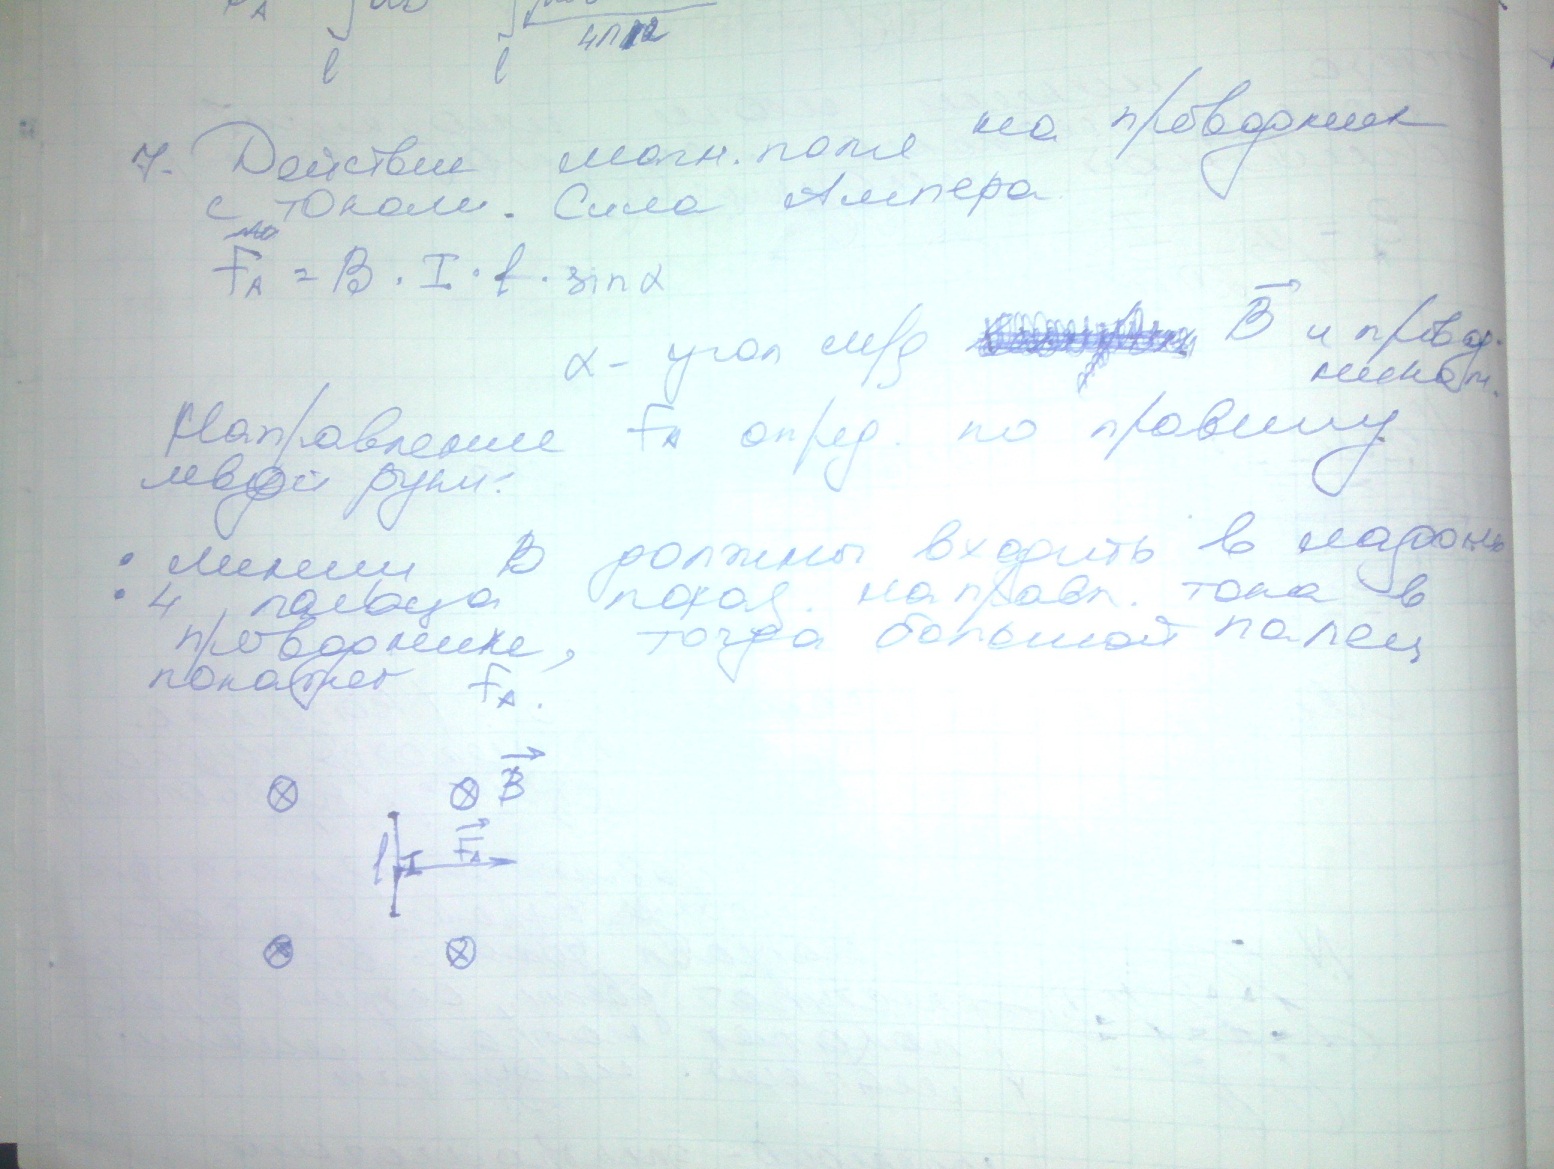 4πr2
7. Действие магн. поля на проводник
с током. Сила Ампера
F_A = B · I · l · sinα
α - угол м/д B⃗ и провод-
ником.
Направление F_A опред. по правилу
левой руки:
• линии B должны входить в ладонь
• 4 пальца показ. направл. тока в
проводнике, тогда большой палец
покажет F_A.
B⃗
F⃗_A
l I